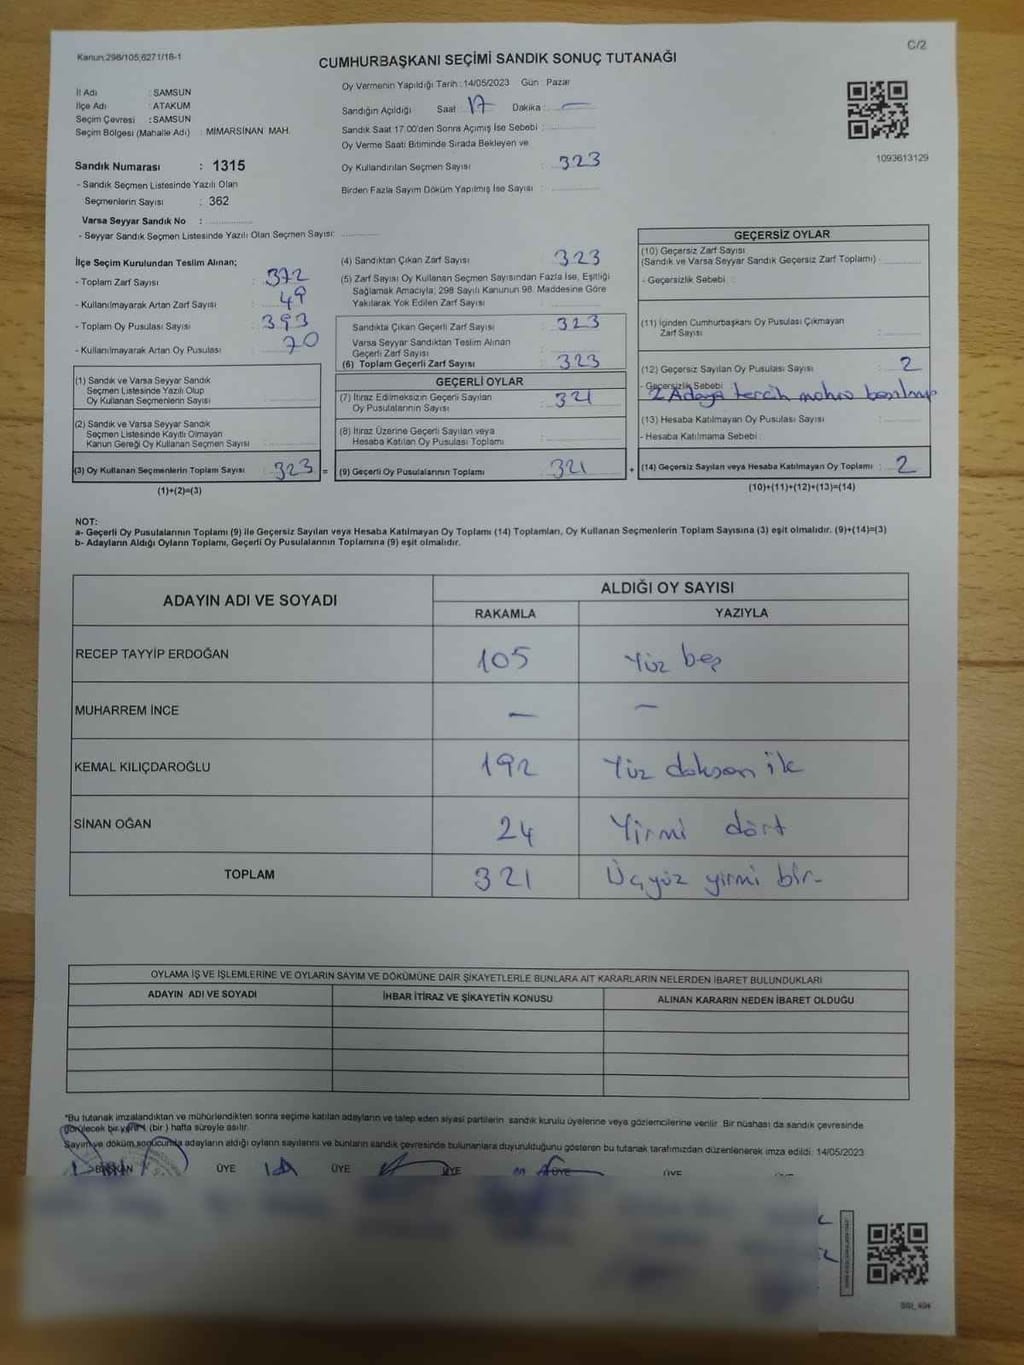 Kanun:298/105;6271/18-1
C/2
CUMHURBAŞKANI SEÇİMİ SANDIK SONUÇ TUTANAĞI
İl Adı : SAMSUN
İlçe Adı : ATAKUM
Seçim Çevresi : SAMSUN
Seçim Bölgesi (Mahalle Adı) : MİMARSİNAN MAH.
Sandık Numarası : 1315
- Sandık Seçmen Listesinde Yazılı Olan
Seçmenlerin Sayısı : 362
Varsa Seyyar Sandık No :
- Seyyar Sandık Seçmen Listesinde Yazılı Olan Seçmen Sayısı:
Oy Vermenin Yapıldığı Tarih : 14/05/2023 Gün : Pazar
Sandığın Açıldığı Saat : 17 Dakika : —
Sandık Saat 17.00'den Sonra Açımış İse Sebebi :
Oy Verme Saati Bitiminde Sırada Bekleyen ve
Oy Kullandırılan Seçmen Sayısı : 323
Birden Fazla Sayım Döküm Yapılmış İse Sayısı :
1093613129
İlçe Seçim Kurulundan Teslim Alınan;
- Toplam Zarf Sayısı : 372
- Kullanılmayarak Artan Zarf Sayısı : 49
- Toplam Oy Pusulası Sayısı : 393
- Kullanılmayarak Artan Oy Pusulası : 70
(1) Sandık ve Varsa Seyyar Sandık
Seçmen Listesinde Yazılı Olup
Oy Kullanan Seçmenlerin Sayısı :
(2) Sandık ve Varsa Seyyar Sandık
Seçmen Listesinde Kayıtlı Olmayan
Kanun Gereği Oy Kullanan Seçmen Sayısı :
(3) Oy Kullanan Seçmenlerin Toplam Sayısı : 323 =
(1)+(2)=(3)
(4) Sandıktan Çıkan Zarf Sayısı : 323
(5) Zarf Sayısı Oy Kullanan Seçmen Sayısından Fazla İse, Eşitliği
Sağlamak Amacıyla; 298 Sayılı Kanunun 98. Maddesine Göre
Yakılarak Yok Edilen Zarf Sayısı :
Sandıkta Çıkan Geçerli Zarf Sayısı : 323
Varsa Seyyar Sandıktan Teslim Alınan
Geçerli Zarf Sayısı :
(6) Toplam Geçerli Zarf Sayısı : 323
GEÇERLİ OYLAR
(7) İtiraz Edilmeksizin Geçerli Sayılan
Oy Pusulalarının Sayısı : 321
(8) İtiraz Üzerine Geçerli Sayılan veya
Hesaba Katılan Oy Pusulası Toplamı :
(9) Geçerli Oy Pusulalarının Toplamı : 321 +
GEÇERSİZ OYLAR
(10) Geçersiz Zarf Sayısı
(Sandık ve Varsa Seyyar Sandık Geçersiz Zarf Toplamı) :
- Geçersizlik Sebebi :
(11) İçinden Cumhurbaşkanı Oy Pusulası Çıkmayan
Zarf Sayısı :
(12) Geçersiz Sayılan Oy Pusulası Sayısı : 2
- Geçersizlik Sebebi 2 Adaya tercih
(13) Hesaba Katılmayan Oy Pusulası Sayısı :
- Hesaba Katılmama Sebebi :
(14) Geçersiz Sayılan veya Hesaba Katılmayan Oy Toplamı : 2
(10)+(11)+(12)+(13)=(14)
NOT:
a- Geçerli Oy Pusulalarının Toplamı (9) ile Geçersiz Sayılan veya Hesaba Katılmayan Oy Toplamı (14) Toplamları, Oy Kullanan Seçmenlerin Toplam Sayısına (3) eşit olmalıdır. (9)+(14)=(3)
b- Adayların Aldığı Oyların Toplamı, Geçerli Oy Pusulalarının Toplamına (9) eşit olmalıdır.
ADAYIN ADI VE SOYADI ALDIĞI OY SAYISI
RAKAMLA YAZIYLA
RECEP TAYYİP ERDOĞAN 105 Yüz beş
MUHARREM İNCE — —
KEMAL KILIÇDAROĞLU 192 Yüz doksan ik
SİNAN OĞAN 24 Yirmi dört
TOPLAM 321 Üçyüz yirmi bir-
OYLAMA İŞ VE İŞLEMLERİNE VE OYLARIN SAYIM VE DÖKÜMÜNE DAİR ŞİKAYETLERLE BUNLARA AİT KARARLARIN NELERDEN İBARET BULUNDUKLARI
ADAYIN ADI VE SOYADI İHBAR İTİRAZ VE ŞİKAYETİN KONUSU ALINAN KARARIN NEDEN İBARET OLDUĞU
*Bu tutanak imzalandıktan ve mühürlendikten sonra seçime katılan adayların ve talep eden siyasi partilerin sandık kurulu üyelerine veya gözlemcilerine verilir. Bir nüshası da sandık çevresinde
görülecek bir yere 1 (bir ) hafta süreyle asılır.
Sayım ve döküm sonucunda adayların aldığı oyların sayılarını ve bunların sandık çevresinde bulunanlara duyurulduğunu gösteren bu tutanak tarafımızdan düzenlenerek imza edildi. 14/05/2023
BAŞKAN ÜYE ÜYE ÜYE ÜYE ÜYE